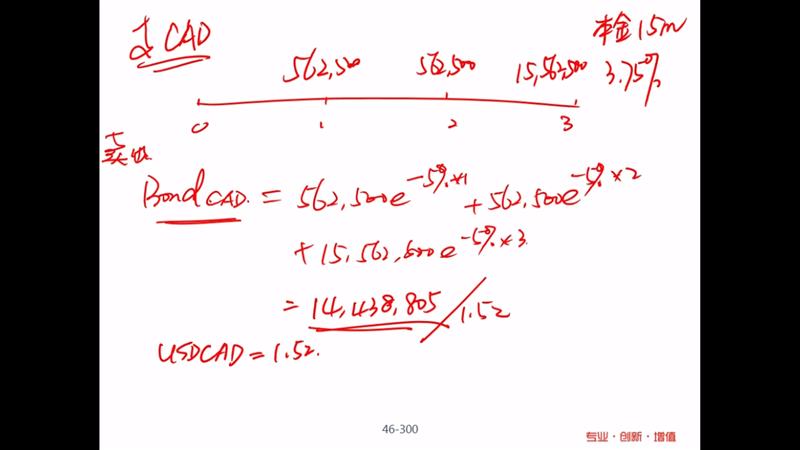 CAD 本金 15m
562,500 562,500 15,562,500 3.75%
0 1 2 3
Bond CAD. = 562,500e^-5%×1 + 562,500e^-5%×2
+ 15,562,500e^-5%×3
= 14,438,805 / 1.52
USDCAD = 1.52.
46-300
专业·创新·增值